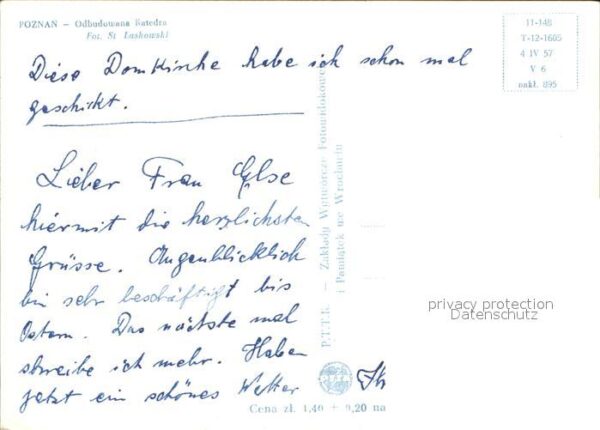 POZNAŃ — Odbudowana Katedra
Fot. St. Laskowski
11-148
T-12-1605
4 IV 57
V 6
nakł. 895
Diese Domkische habe ich schon mal
geschickt.
Lieber Frau Else
hiermit die herzlichsten
Grüsse. Augenblicklich
bin sehr beschäftigt bis
Ostern. Das nächste mal
schreibe ich mehr. Haben
jetzt ein schönes Wetter
P.T.T.K. — Zakłady Wytwórcze Fotowidokowe
i Pamiątek we Wrocławiu
privacy protection
Datenschutz
Cena zł. 1,40 + 0,20 na